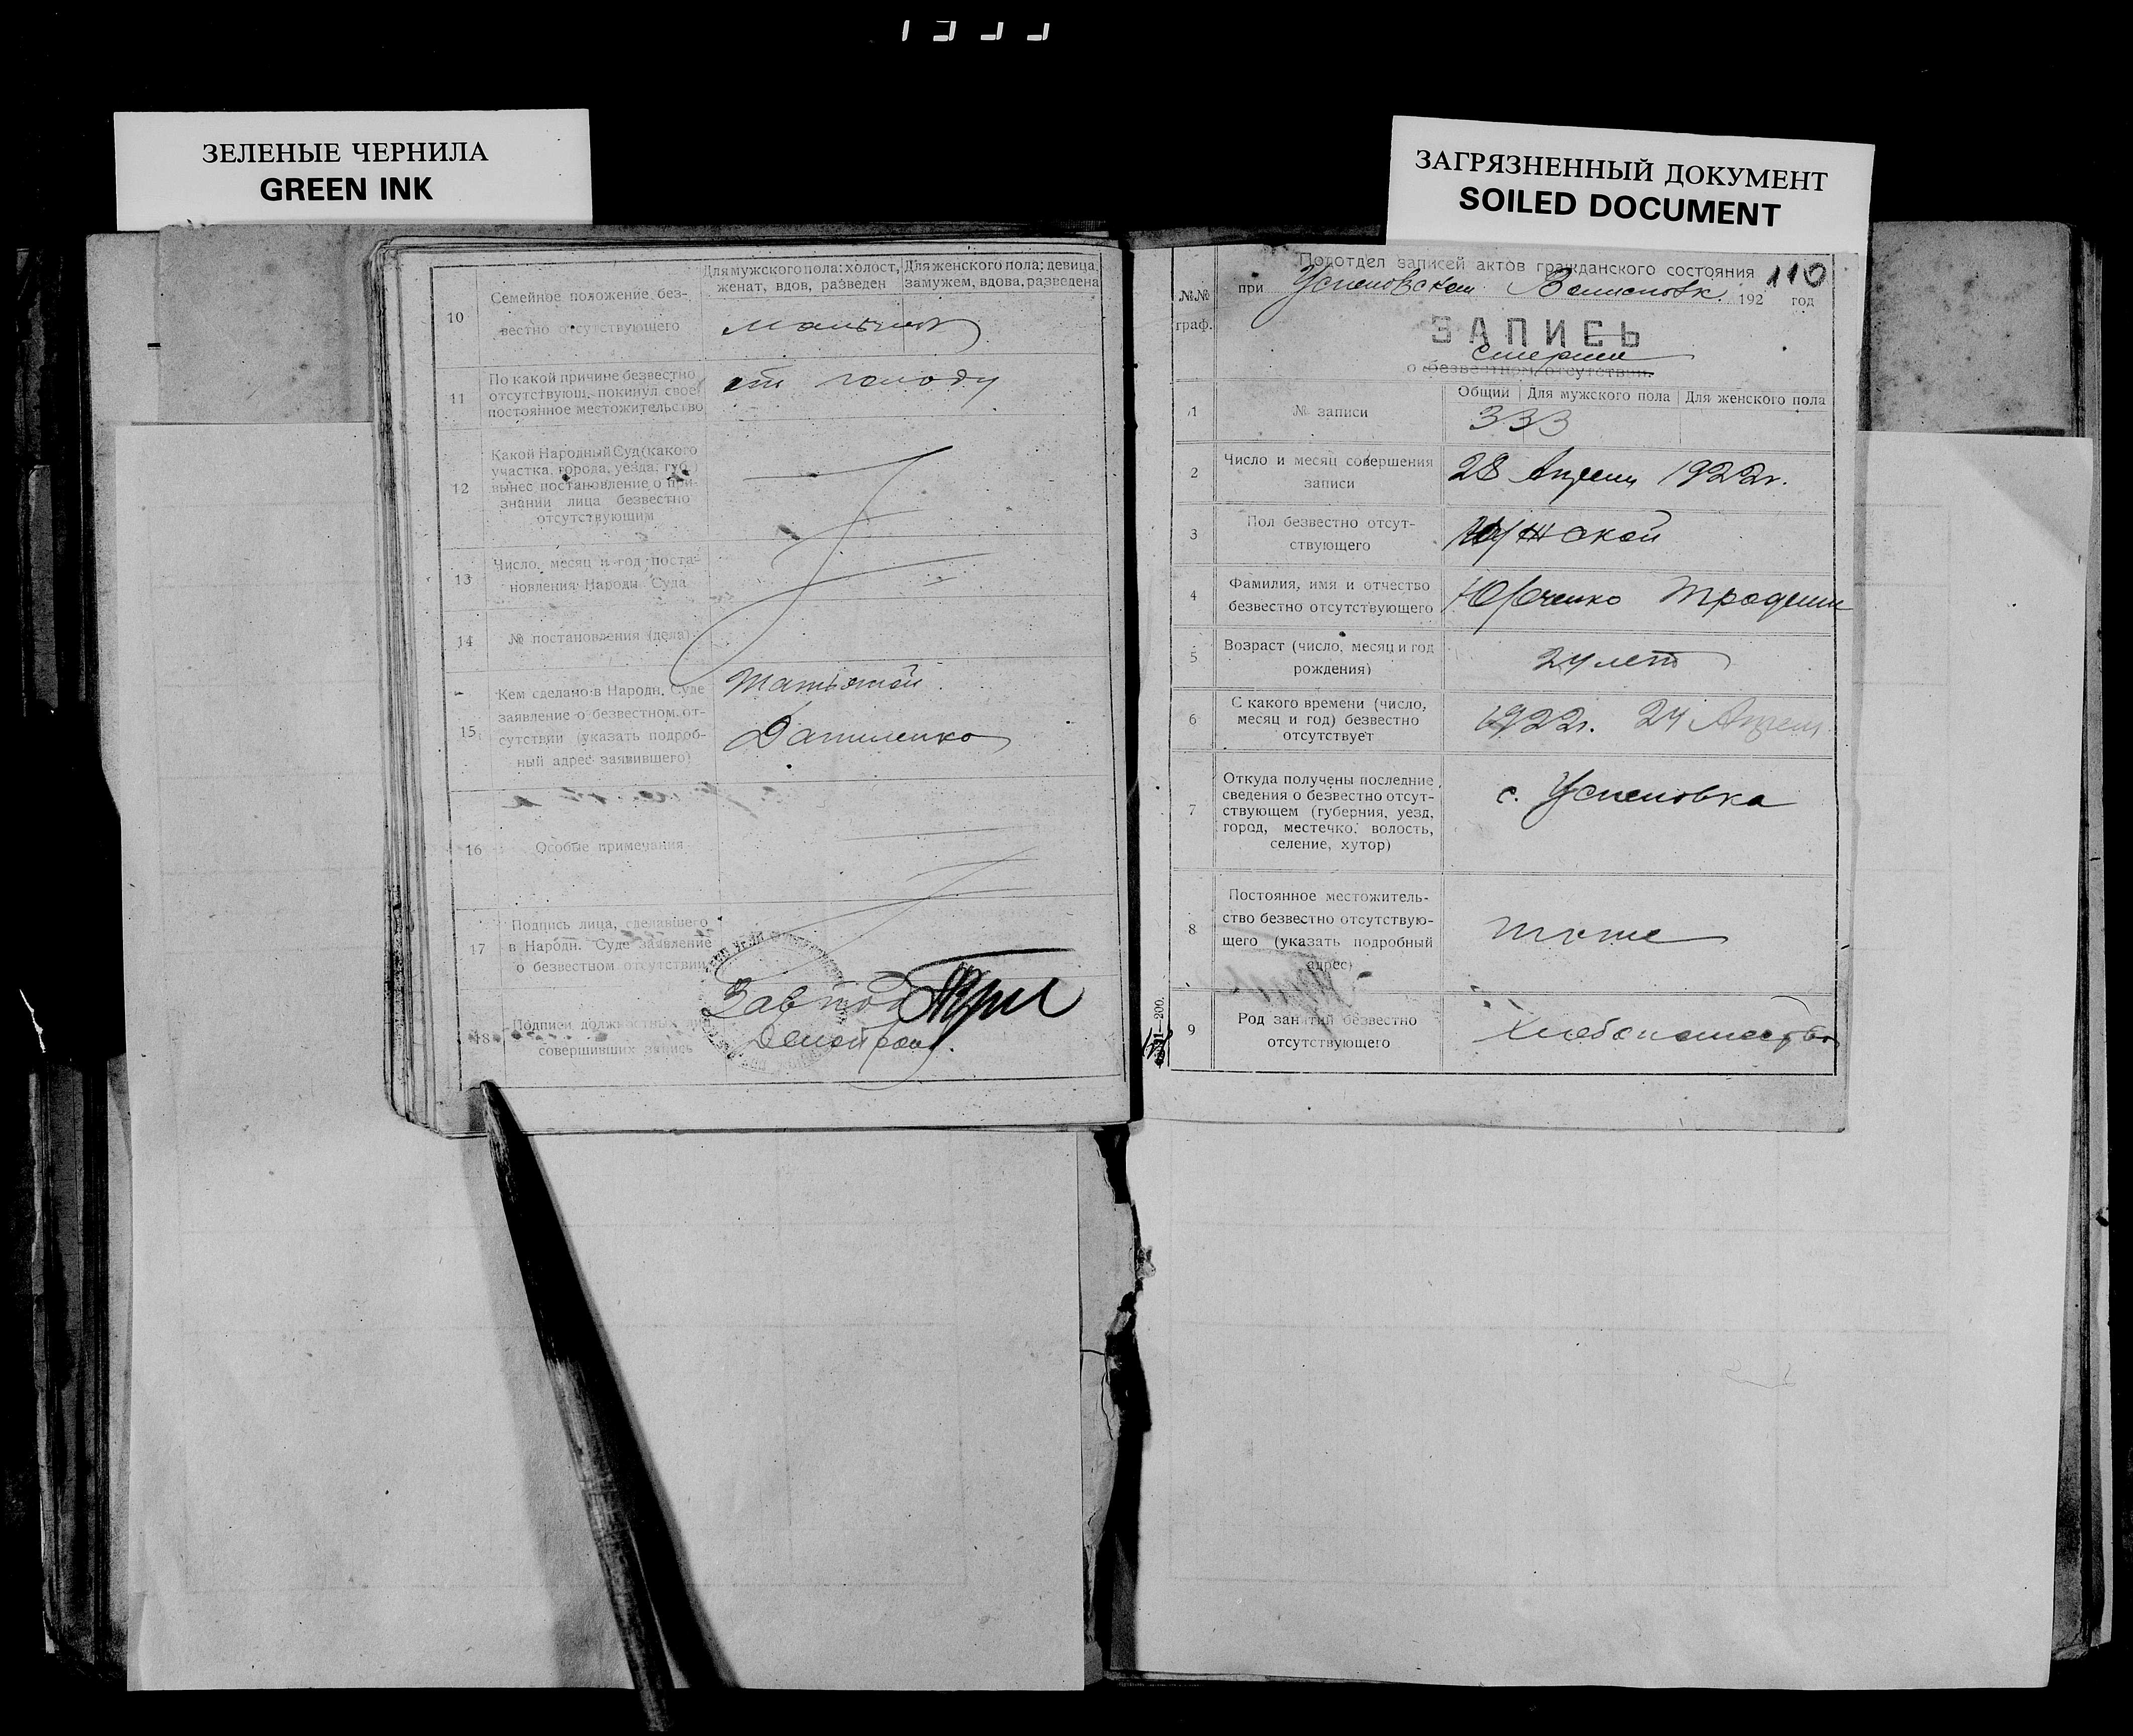 ЗЕЛЕНЫЕ ЧЕРНИЛА
GREEN INK
ЗАГРЯЗНЕННЫЙ ДОКУМЕНТ
SOILED DOCUMENT
Для мужского пола: холост, женат, вдов, разведен
Для женского пола: девица, замужем, вдова, разведена
10
Семейное положение без-
вестно отсутствующего
мальчик
11
По какой причине безвестно
отсутствующ. покинул свое
постоянное местожительство
от голоду
12
Какой Народный Суд (какого
участка, города, уезда, губ.)
вынес постановление о при-
знании лица безвестно
отсутствующим
13
Число, месяц и год поста-
новления Народн. Суда
14
№ постановления (дела)
15
Кем сделано в Народн. Суде
заявление о безвестном от-
сутствии (указать подроб-
ный адрес заявившего)
Татьяной
Даниленко
16
Особые примечания
17
Подпись лица, сделавшего
в Народн. Суде заявление
о безвестном отсутствии
18
Подписи должностных лиц
совершивших запись
Завпод
110
Подотдел записей актов гражданского состояния
при Успеновском 192 год
№№
граф.
ЗАПИСЬ
смерти
о безвестном отсутствии.
Общий Для мужского пола Для женского пола
1
№ записи
333
2
Число и месяц совершения
записи
28 Апреля 1922г.
3
Пол безвестно отсут-
ствующего
Мужской
4
Фамилия, имя и отчество
безвестно отсутствующего
Юрченко
5
Возраст (число, месяц и год
рождения)
24 лет
6
С какого времени (число,
месяц и год) безвестно
отсутствует
1922г. 24 Апреля
7
Откуда получены последние
сведения о безвестно отсут-
ствующем (губерния, уезд,
город, местечко, волость,
селение, хутор)
с. Успеновка
8
Постоянное местожитель-
ство безвестно отсутствую-
щего (указать подробный
адрес)
тоже
9
Род занятий безвестно
отсутствующего
Хлебопашество